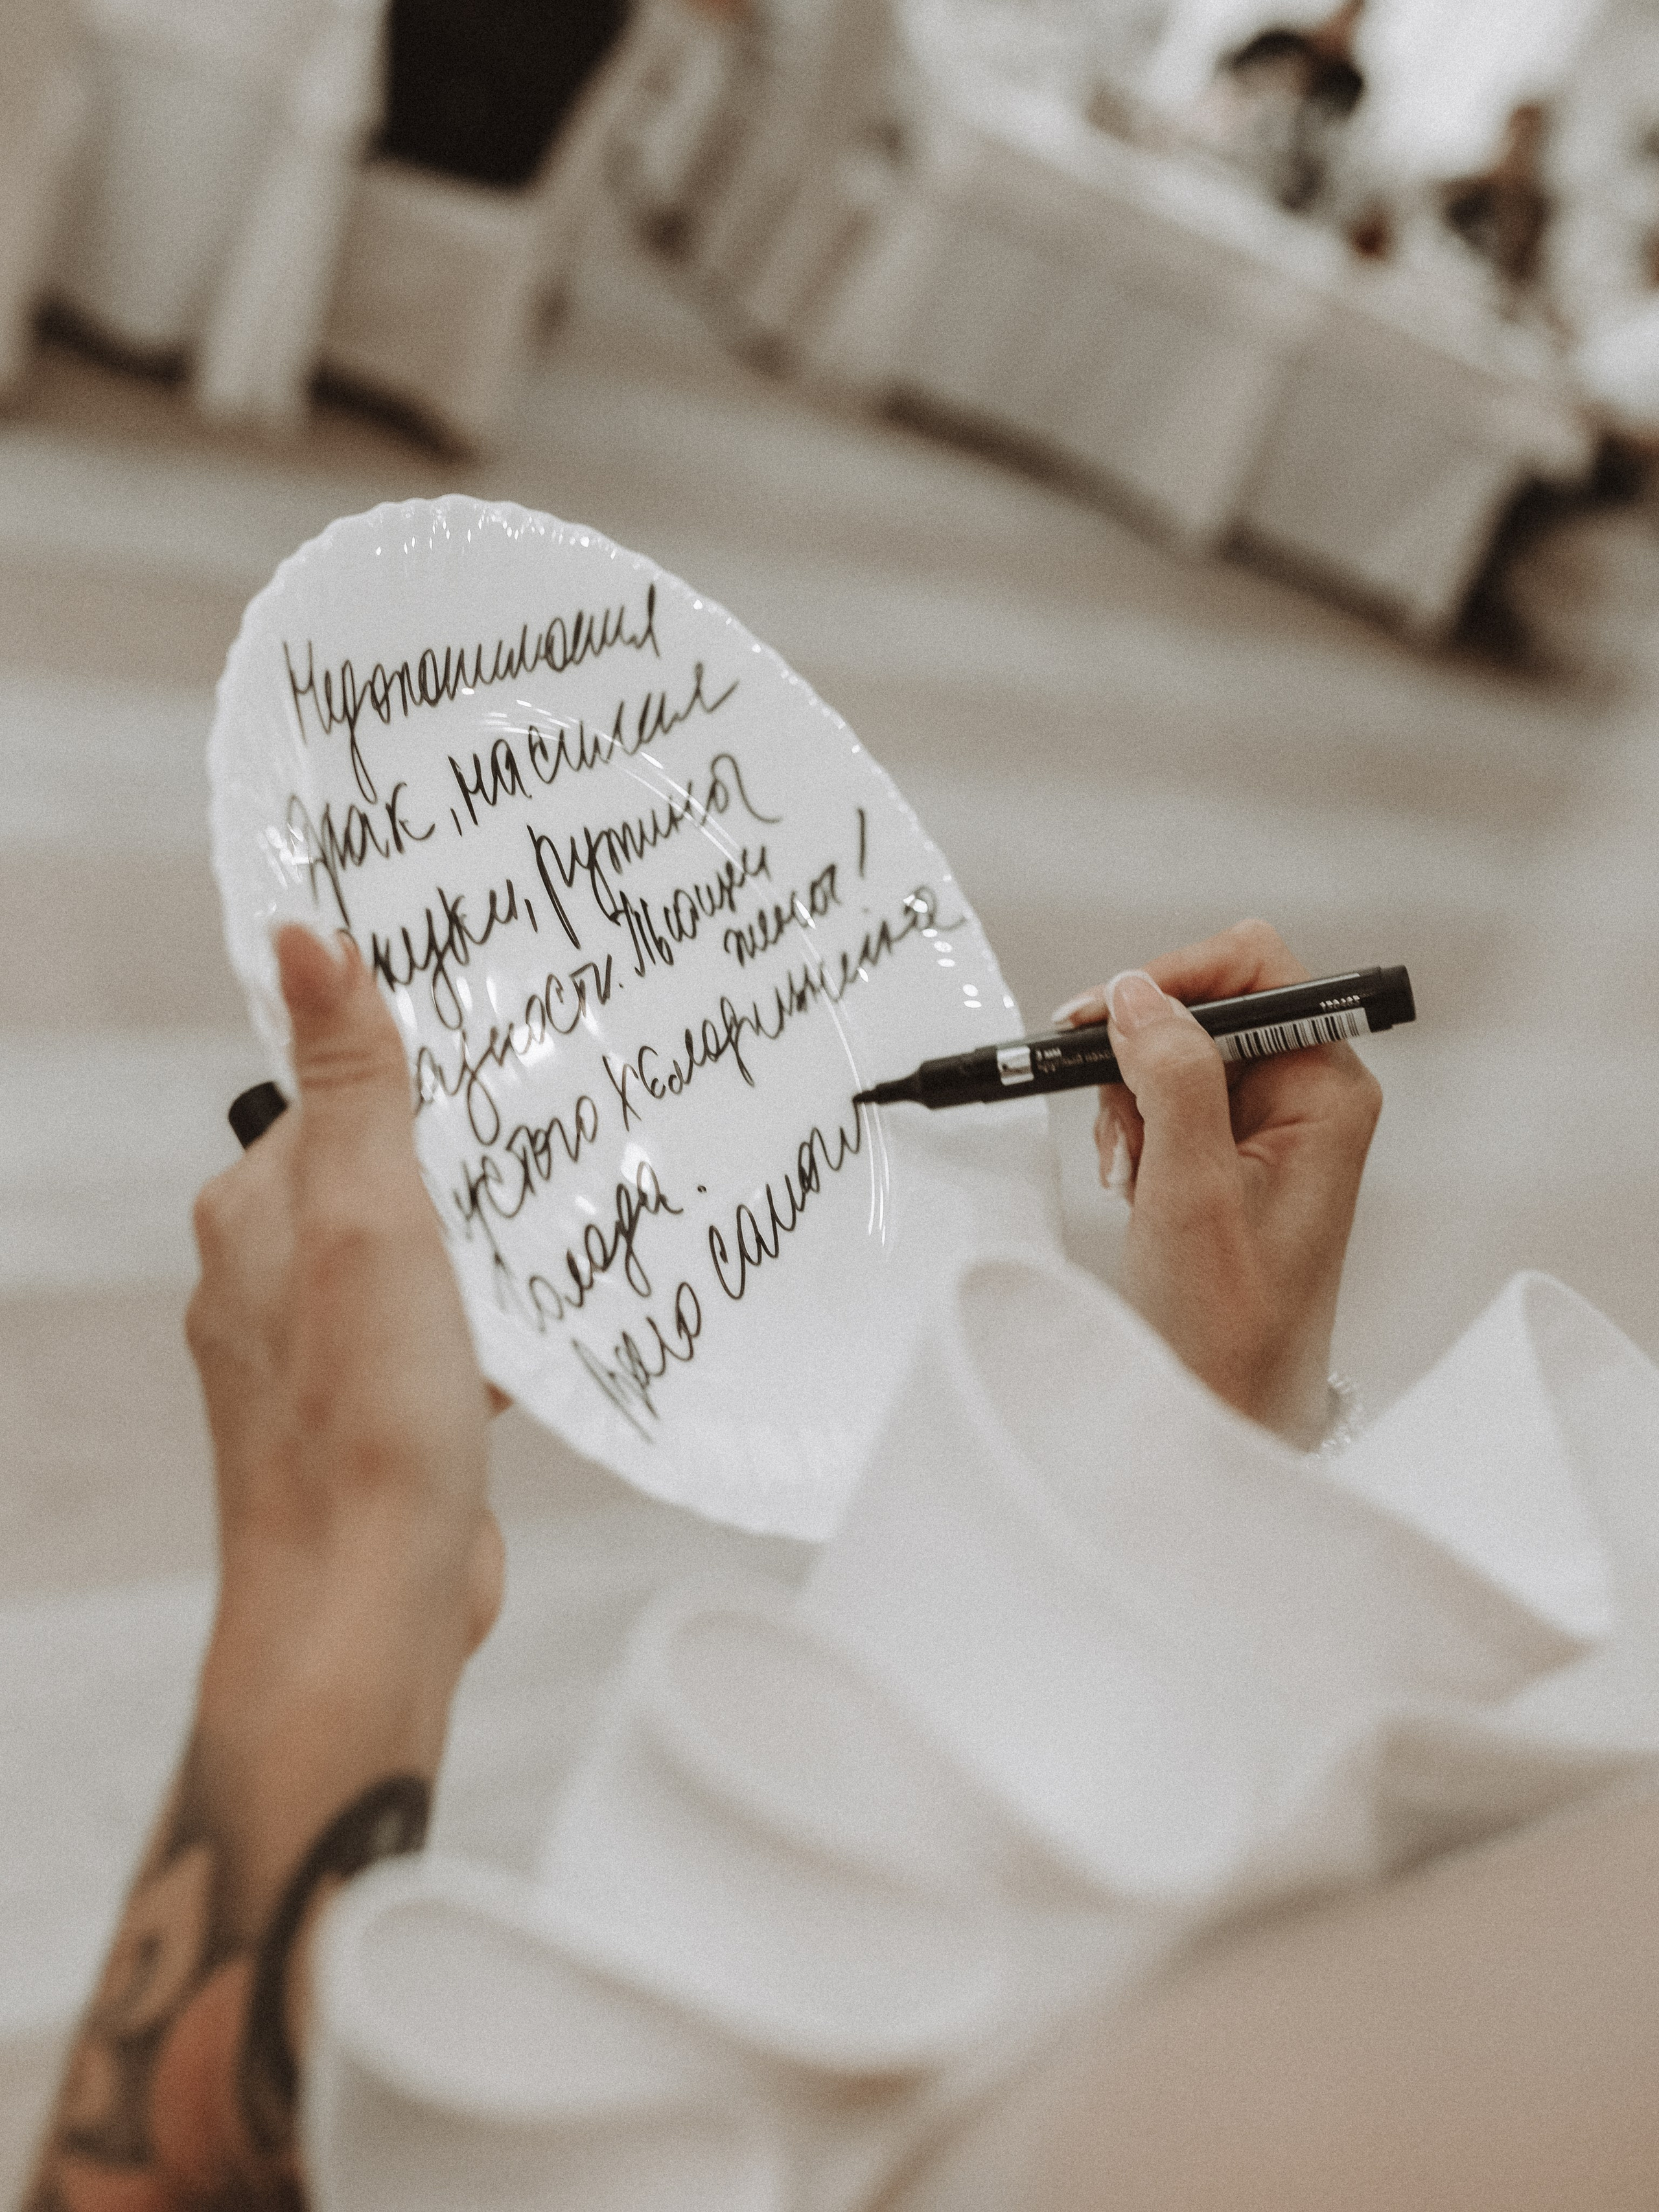 Недопонимания
драк, насилия
скуки, рутины
разности. Пьющей
жены!
пустого холодильника
голода.
Всего самого